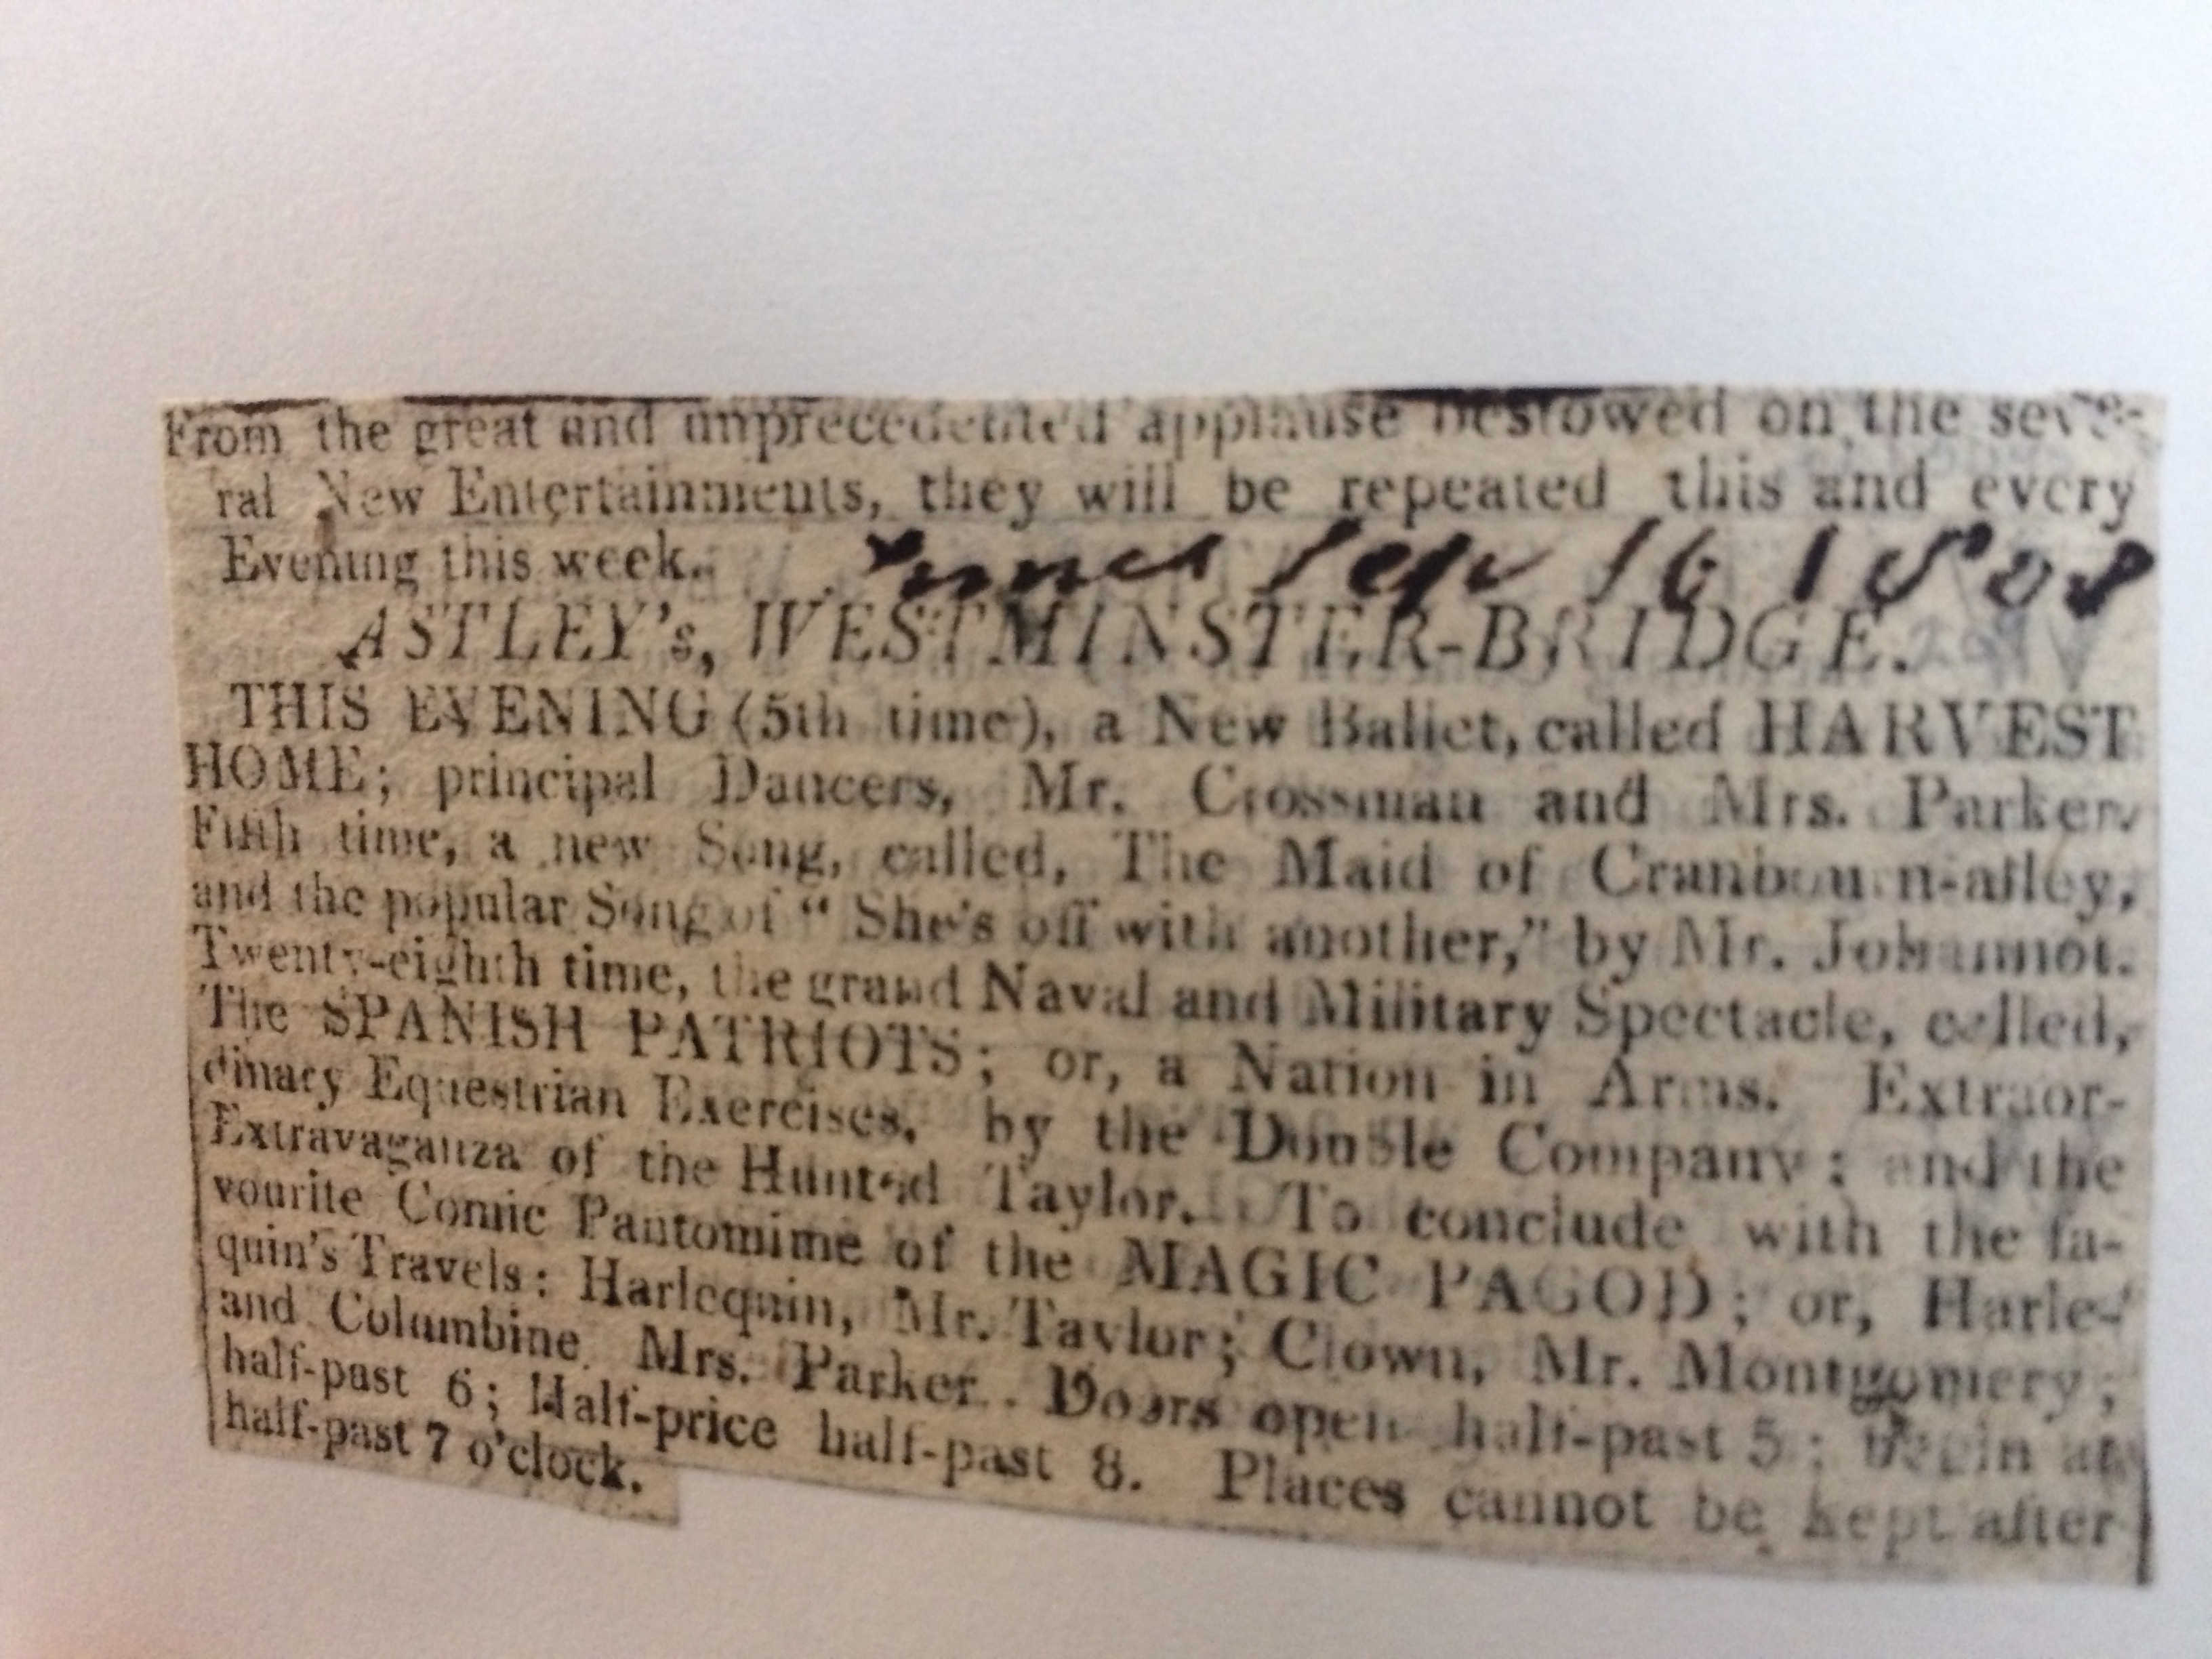 From the great and unprecedented applause bestowed on the seve-
ral New Entertainments, they will be repeated this and every
Evening this week.
Times Sep 16 1808
ASTLEY's, WESTMINSTER-BRIDGE.
THIS EVENING (5th time), a New Ballet, called HARVEST
HOME; principal Dancers, Mr. Crossman and Mrs. Parker.
Fifth time, a new Song, called, The Maid of Cranbourn-alley,
and the popular Song of “ She's off with another,” by Mr. Johannot.
Twenty-eighth time, the grand Naval and Military Spectacle, called,
The SPANISH PATRIOTS; or, a Nation in Arms. Extraor-
dinary Equestrian Exercises, by the Double Company; and the
Extravaganza of the Hunted Taylor. To conclude with the fa-
vourite Comic Pantomime of the MAGIC PAGOD; or, Harle-
quin's Travels: Harlequin, Mr. Taylor; Clown, Mr. Montgomery;
and Columbine, Mrs. Parker. Doors open half-past 5; begin at
half-past 6; Half-price half-past 8. Places cannot be kept after
half-past 7 o'clock.